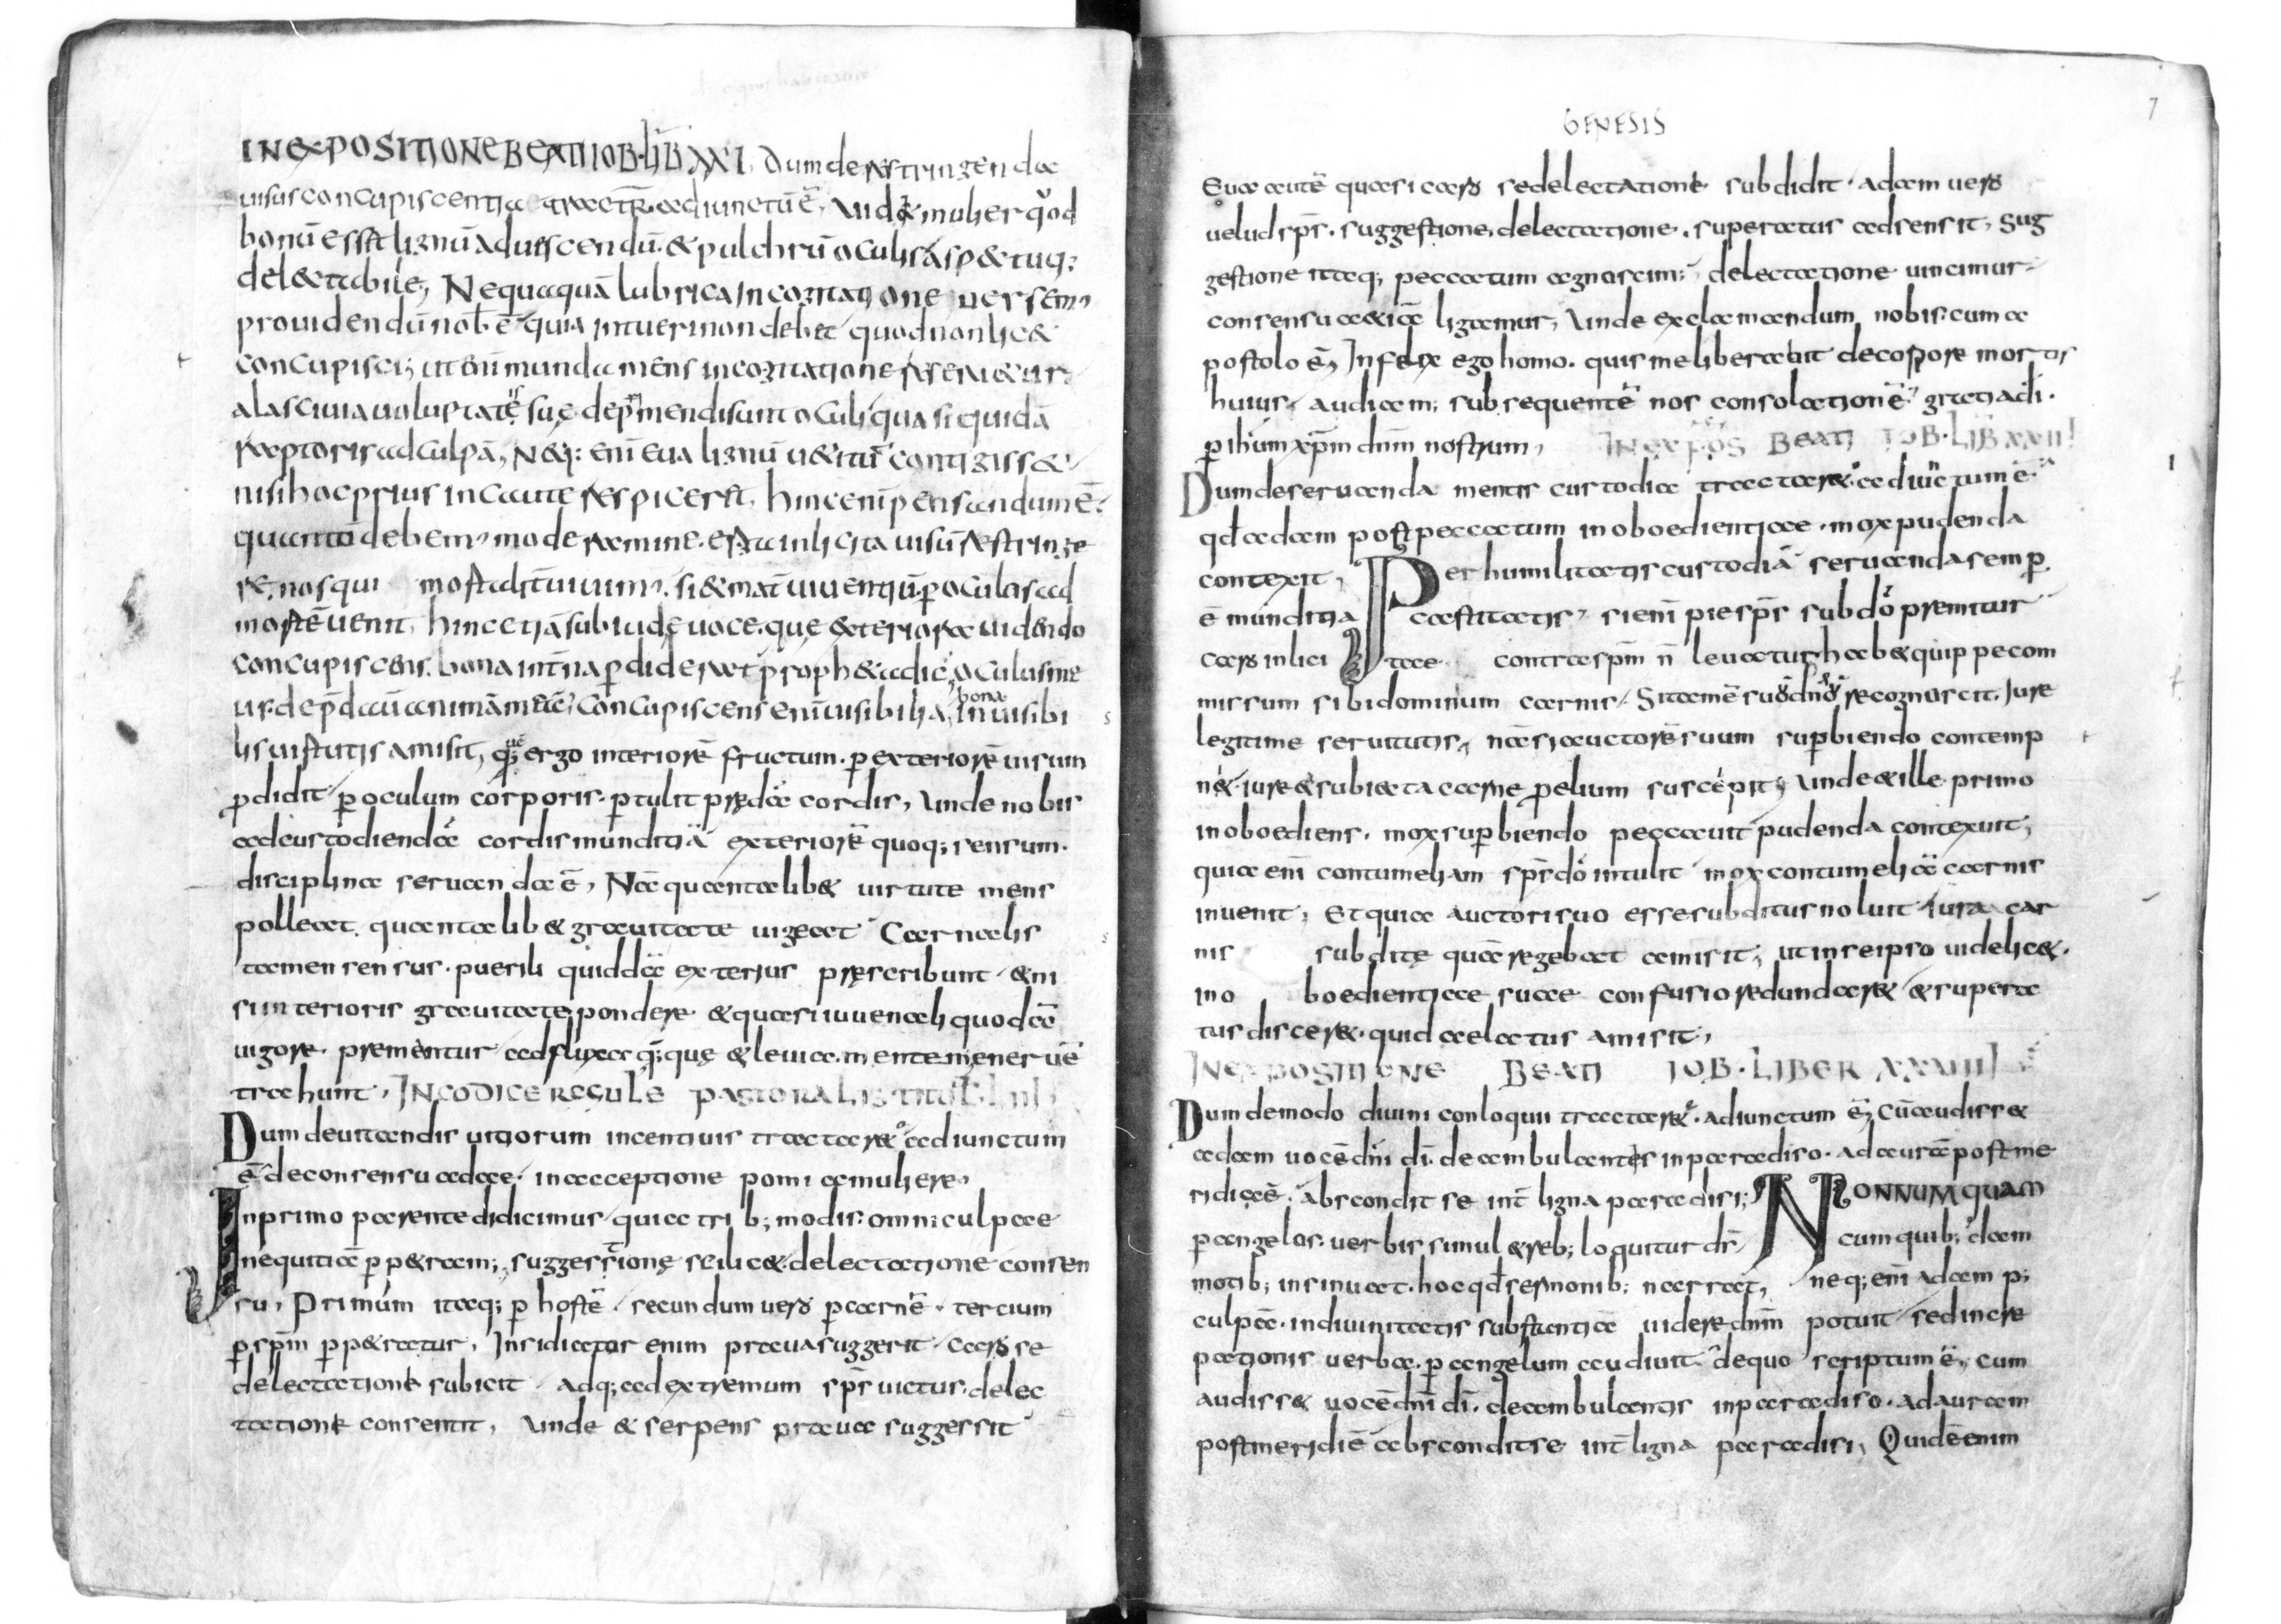 IN EXPOSITIONE BEATI IOB · LIB XXI, Dum de restringenda
uisus concupiscentia tractar& adiunctū ē, Uid& mulier quod
bonū ess& lignū aduescendū · & pulchrū oculis asp&tuq;
del&tabile, Nequaquā lubrica in cogitatione uersem,
prouidendū nob ē quia intueri non deb& quod non lic&
concupisci; ut ēni munda mens in cogitatione seru&ur
a lasciuia uoluptatē suę depmendi sunt oculi quasi quidā
raptoris ad culpā, N&q; enī Eua lignū u&itū contigiss&
nisi hoc prius incaute respicer&, hinc enī pensandum ē
quantū debem, moderamine erga inlicita uisū restringe
re, nos qui mortalit uiuim, si & mat uiuentiū p oculos ad
mortē uenit, hinc etiā sub iudę uoce · que exteriora uidendo
concupiscens bona int̄na pdiderat proph&a dic, oculus me
us depdatus animam meā, Concupiscens enī uisibilia, bona inuisibi
lis uirtutis amisit, quę ergo interiorē fructum · p exteriorē uisum
pdidit p oculum corporis ptulit prędā cordis, Unde nobis
ad custodiendā cordis munditiā exteriorē quoq; sensum ·
disciplina seruanda ē, Nā quantalib& uirtute mens
polleat, quantalib& grauitate uigeat Carnalis
tamen sensus · puerili quiddā exterius pręscribunt & ni
si interioris grauitate pondere & quasi iuuenali quodā
uigore prementur ad fluxa q;que & leuia mentem eneruē
trahunt, IN CODICE REGULE PASTORALIS TITUL LIII
Dum de uitandis uitiorum incentiuis tractar& adiunctum
ē de consensu adae in acceptione pomi a muliere,
In primo parente didicimus quia tri b; modis omni culpae
nequitiā p p&ram; suggestione scilic& delectatione consen
su, Primum itaq; p hostē secundum uero p carnē · tercium
p spm p p&ratur, Insidiator enim praua suggerit caro se
delectatione subicit adq; ad extremum sps uictus delec
tatione consentit, Unde & serpens praua suggessit
GENESIS 7
Eua autē quasi caro se delectatione subdidit · adam uero
uelud sps · suggestione, delectatione superatus adsensit, Sug
gestione itaq; peccatum agnoscim; delectatione uincimur
consensu a&iā ligamur, Unde exclamandum nobis cum a
postolo ē, Infelix ego homo · quis me liberabit de corpore mortis
huius, audiam; subsequentē nos consolationē gratia di ·
p ihum xpm dnm nostrum, IN EXPOS BEATI IOB · LIB XXII
Dum de seruanda mentis custodia tractar& adiuctum ē
qd adam post peccatum inoboedientiae · mox pudenda
contexit, Per humilitatis custodiā seruanda semp
ē munditia castitatis, si enī pie sps sub dō premitur
caro inlici tae contra spm n̄ leuatur hab& quippe com
missum sibi dominum carnis, Si tamē suo dno recognoscit, Iure
legitime seruitutis, nā si auctorē suum superbiendo contemp
n& iure & subiecta carne pelium suscepit, Unde & ille primo
inoboediens · mox superbiendo peccauit pudenda contexuit,
quia enī contumeliam sps dō intulit mox contumeliā carnis
inuenit, Et quia auctori suo esse subditus noluit iura car
nis subditę quā regebat amisit, ut in se ipso uidelic& ·
ino boedientiae suae confusio redundar& & supera
tus discer& · quid aelatus amisit,
IN EXPOSITIONE BEATI IOB · LIBER XXVIII
Dum de modo diuini conloquii tractar& · adiunctum ē, Cū audiss&
adam uocē dni di · deambulantis in paradiso · ad aurā post me
ridiaē · abscondit se int̄ ligna paradisi; NONNUMQUAM
p angelos · uerbis simul & reb; loquitur ds cum quib; dam
motib; insinuat · hoc qd sermonib; narrat, neq; enī adam p;
culpā · in diuinitatis substantiā uidere dnm potuit sed incre
pationis uerba · p angelum audiuit · de quo scriptum ē, cum
audiss& uocē dni di · deambulantis in paradiso · ad auram
post meridiē abscondit se int̄ ligna paradisi, Quid ē enim